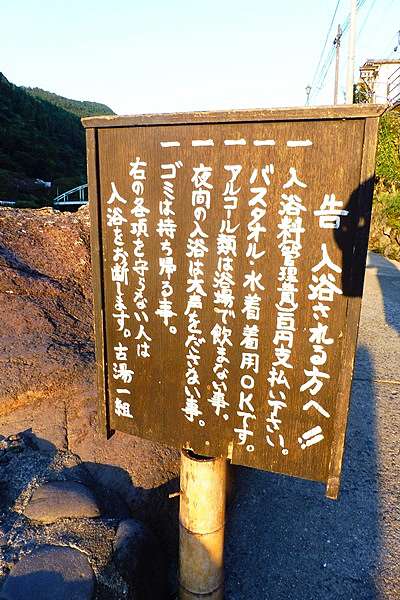 告 入浴される方へ!!
一 入浴料管理費百円支払い下さい。
一 バスタオル 水着着用OKです。
一 アルコール類は浴場で飲まない事。
一 夜向の入浴は大声をださない事。
一 ゴミは持ち帰る事。
右の各項を守らない人は
入浴をお断りします。古湯一組